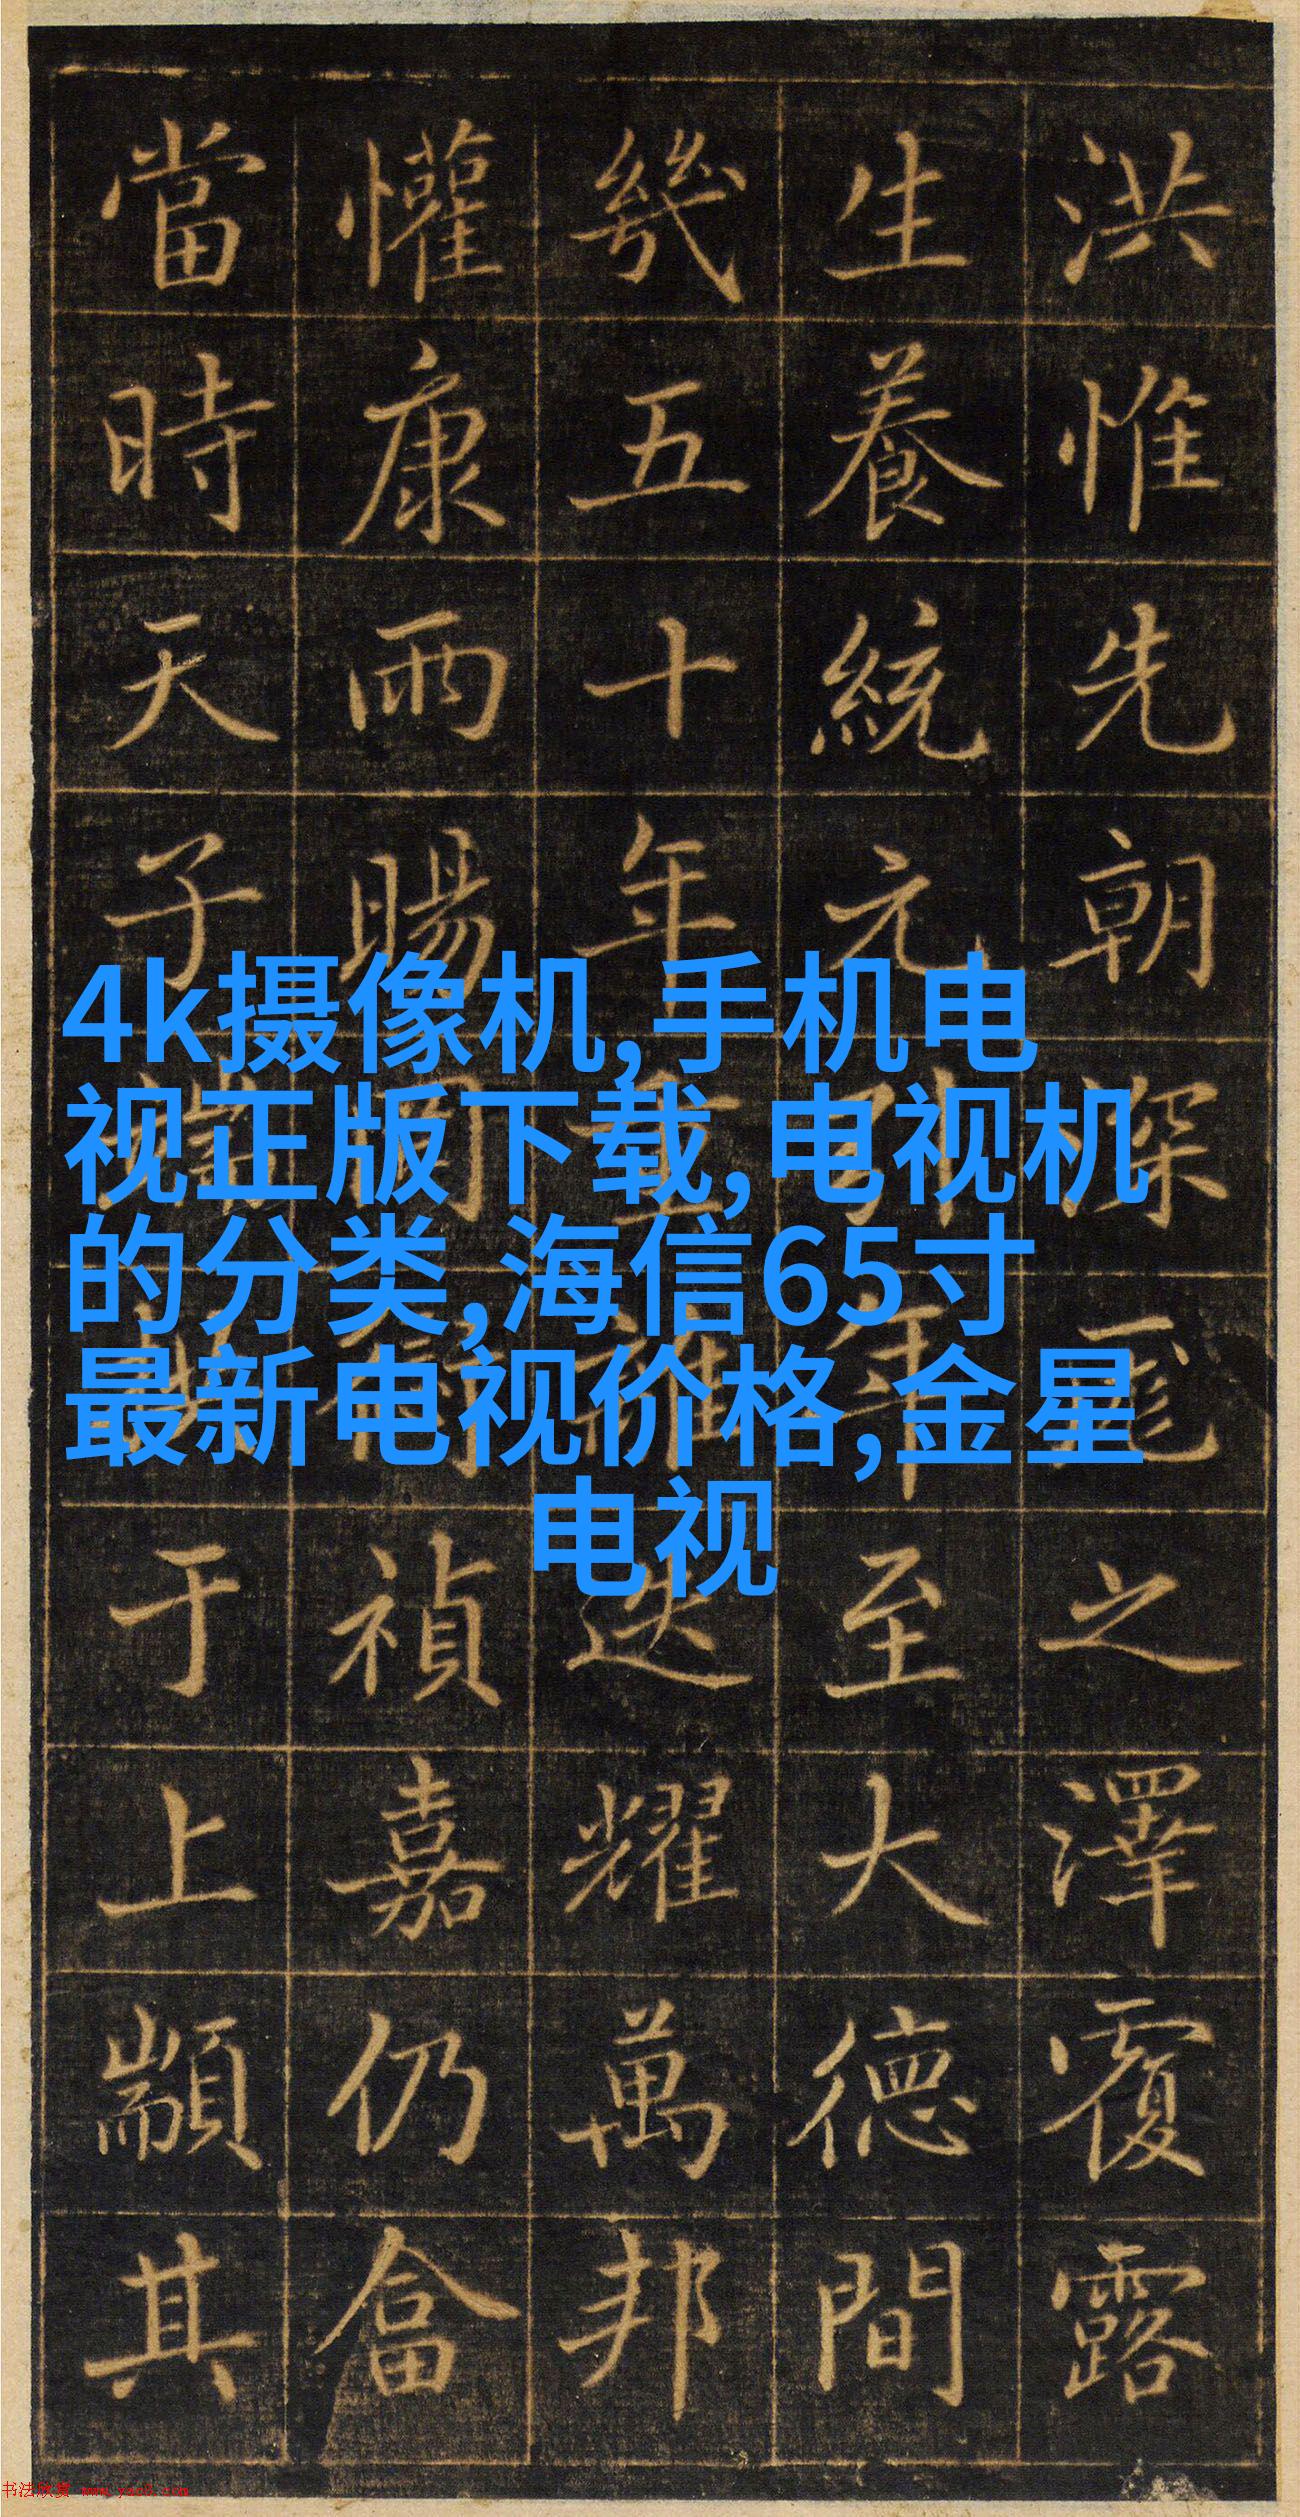 洪惟先朝深厖之澤覆露
生養統元年至大德間
幾五十年重離迭耀萬邦
懽康雨暘禎嘉仍畣
當時天子端于上顒其
4k摄像机,手机电
视正版下载,电视机
的分类,海信65寸
最新电视价格,金星
电视
书法欣赏 www.yac8.com